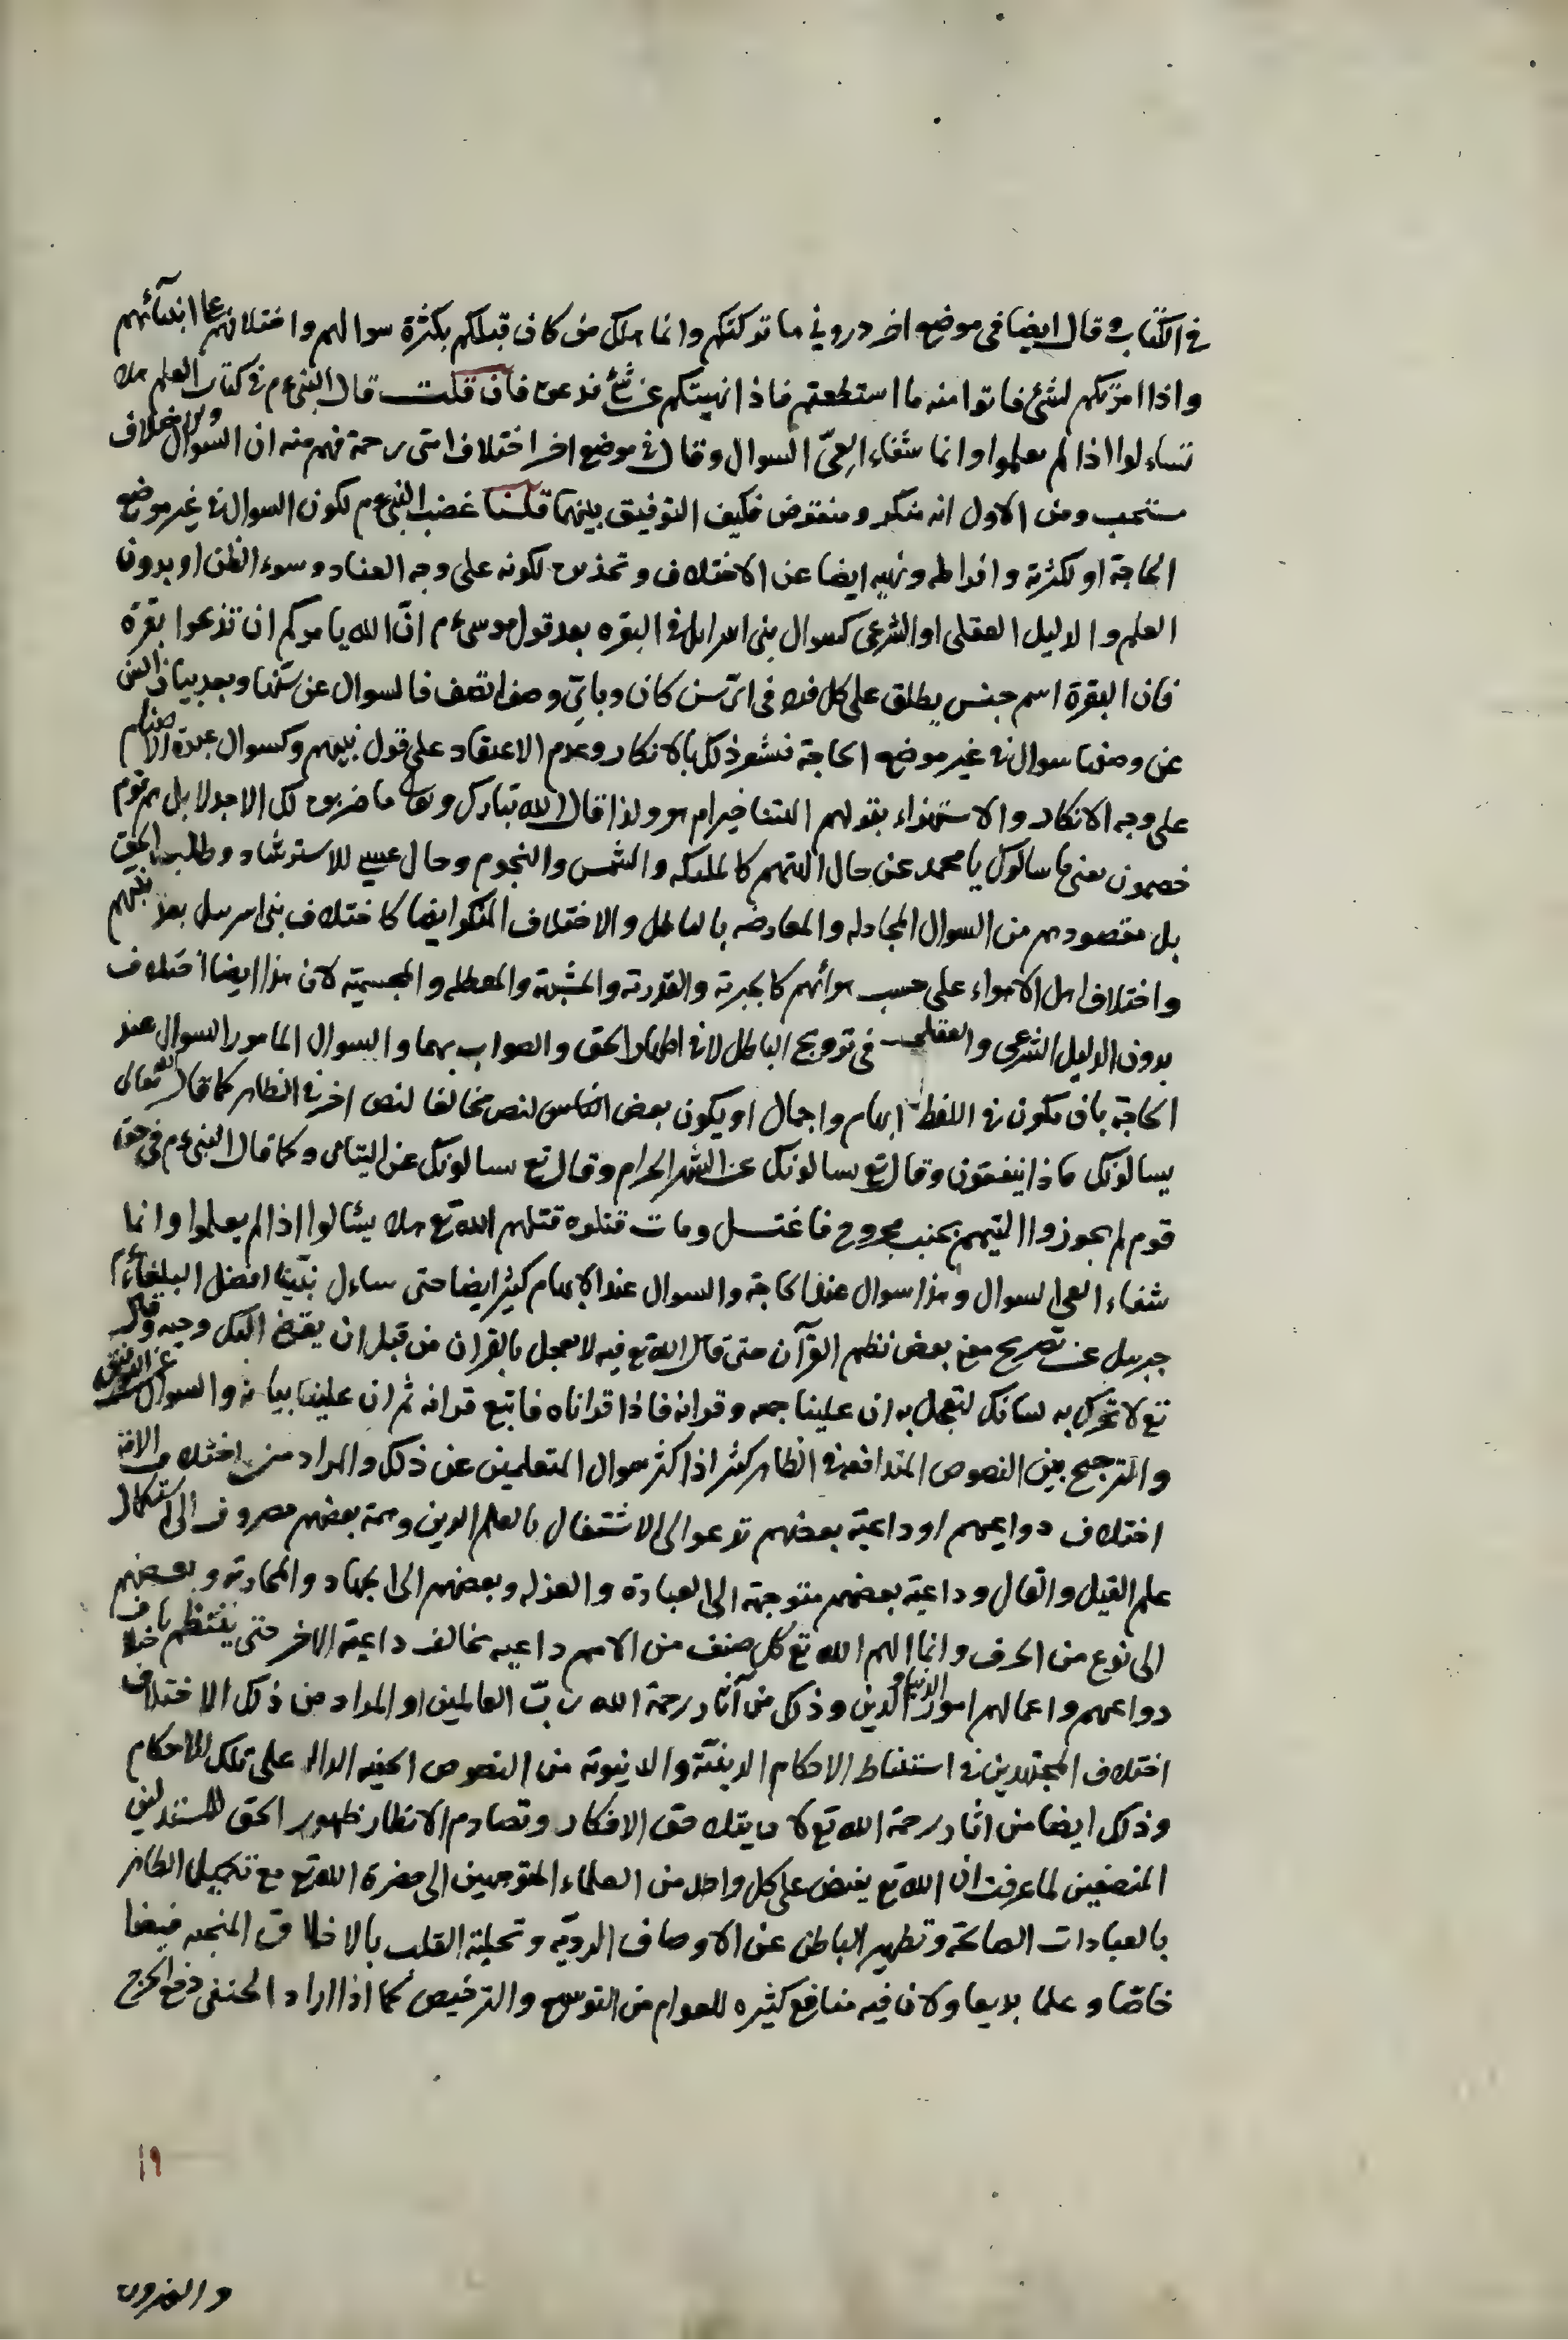 في الكتاب وقال ايضا في موضع اخر دروني ما تركتكم وانما هلك من كان قبلكم بكثرة سوالهم واختلافهم على انبيآئهم
واذا امرتكم لشئ فاتوا منه ما استطعتم فاذا نهيتكم عن شئ فدعوه فان قلت قال النبي ءم في كتاب العلم هلا
تساءلوا اذا لم يعلموا وانما شفاء العيّ السوال وقال في موضع اخر اختلاف امتى رحمة فهم منه ان السوال والاختلاف
مستحب ومن الاول انه منكر و منقوض فكيف التوفيق بينهما قلنا غضب النبي ءم لكون السوال في غير موضع
الحاجة او لكثرته وافراطه ونهيه ايضا عن الاختلاف وتحذيره لكونه على وجه العناد وسوء الظن او بدون
العلم والدليل العقلى او الشرعى كسوال بنى اسرايل في البقره بعد قول موسى ءم انّ الله يامركم ان تذبحوا بقرة
فان البقرة اسم جنس يطلق على كل فرد في اىّ سن كان وباىّ وصف اتصف فالسوال عن سنّها وبعد بيان السن
عن وصفها سوال في غير موضع الحاجة فنشعر ذلك بالانكار وعدم الاعتقاد على قول نبيهم وكسوال عبدة الاصنام
على وجه الانكار والاستهزاء بقولهم الهتنا خير ام هو ولذا قال الله تبارك وتعالى ما ضربوه لك الا جدلا بل هم قوم
خصمون يعنى ما سالوك يا محمد عن حال الهتهم كالملئكه والشمس والنجوم وحال عيسى للاسترشاد وطلب الحق
بل مقصودهم من السوال المجادله والمعارضه بالباطل والاختلاف المنكر ايضا كاختلاف بنى اسرىىل بعد نبيهم
واختلاف اهل الاهواء على حسب هوائهم كالجبرية والقدرية والمشبهة والمعطله والمجسميّة لان هذا ايضا اختلاف
بدون الدليل الشرعى والعقلى في ترويج الباطل لا في اظهار الحق والصواب بهما والسوال المامور السوال عند
الحاجة بان يكون في اللفظ ابهام واجمال او يكون بعض النّاس لنص مخالفا لنص اخر في الظاهر كما قال الله تعالى
يسالونك ماذا ينفقون وقال تع يسالونك عن الشهر الحرام وقال تع يسالونك عن اليتامى وكما قال النبي ءم في حق
قوم لم يجوزوا التيمم بجنب مجروح فاغتسل ومات قتلوه قتلهم الله تع هلا يسئالوا اذا لم يعلموا وانما
شفاء العى السوال وهذا سوال عند الحاجة والسوال عند الابهام كثير ايضا حتى ساءل نبيّنا افضل البلغاء ءم
جبريل عن تصريح معنى بعض نظم القرآن حتى قال الله تع فيه لا تعجل بالقران من قبل ان يقضى اليك وحيه وقال
تع لا تحرك به لسانك لتعجل به ان علينا جمعه وقرانه فاذا قراناه فاتبع قرانه ثم ان علينا بيانه والسوال عن التوفيق
والترجيح بين النصوص المتدافعة في الظاهر كثير اذ اكثر سوال المتعلمين عن ذلك والمراد من اختلاف الامّة
اختلاف دواعيهم او داعيّة بعضهم تدعوا الى الاشتغال بالعلم الدين وهمة بعضهم مصروف الى استكمال
علم القيل والقال وداعيّة بعضهم متوجهة الى العبادة والعزله وبعضهم الى الجهاد والمحاربة وبعضهم
الى نوع من الحرف وانما الهم الله تع كل صنف من الامم داعيه يخالف داعيّة الاخر حتى ينتظم باختلاف
دواعهم واعمالهم امور الدنيا والدين وذلك من آثار رحمة الله ربّ العالمين او المراد من ذلك الاختلاف
اختلاف المجتهدين في استنباط الاحكام الدينيّة والدنيوية من النصوص الخفيه الداله على تلك الاحكام
وذلك ايضا من اثار رحمة الله تع لا بتلاحق الافكار وتصادم الانظار ظهور الحق للمستدلين
المنصفين لما عرفت ان الله تع يفيض على كل واحد من العلماء المتوجهين الى حضرة الله تع مع تكميل الظاهر
بالعبادات الصالحة وتطهير الباطن عن الاوصاف الرديّه وتحلية القلب بالاخلاق المنجيه فيضا
خاصّا وعلما بديعا ولان فيه منافع كثيره للعوام من التوسيع والترخيص كما اذا اراد الحنفى دفع الحرج
١٩